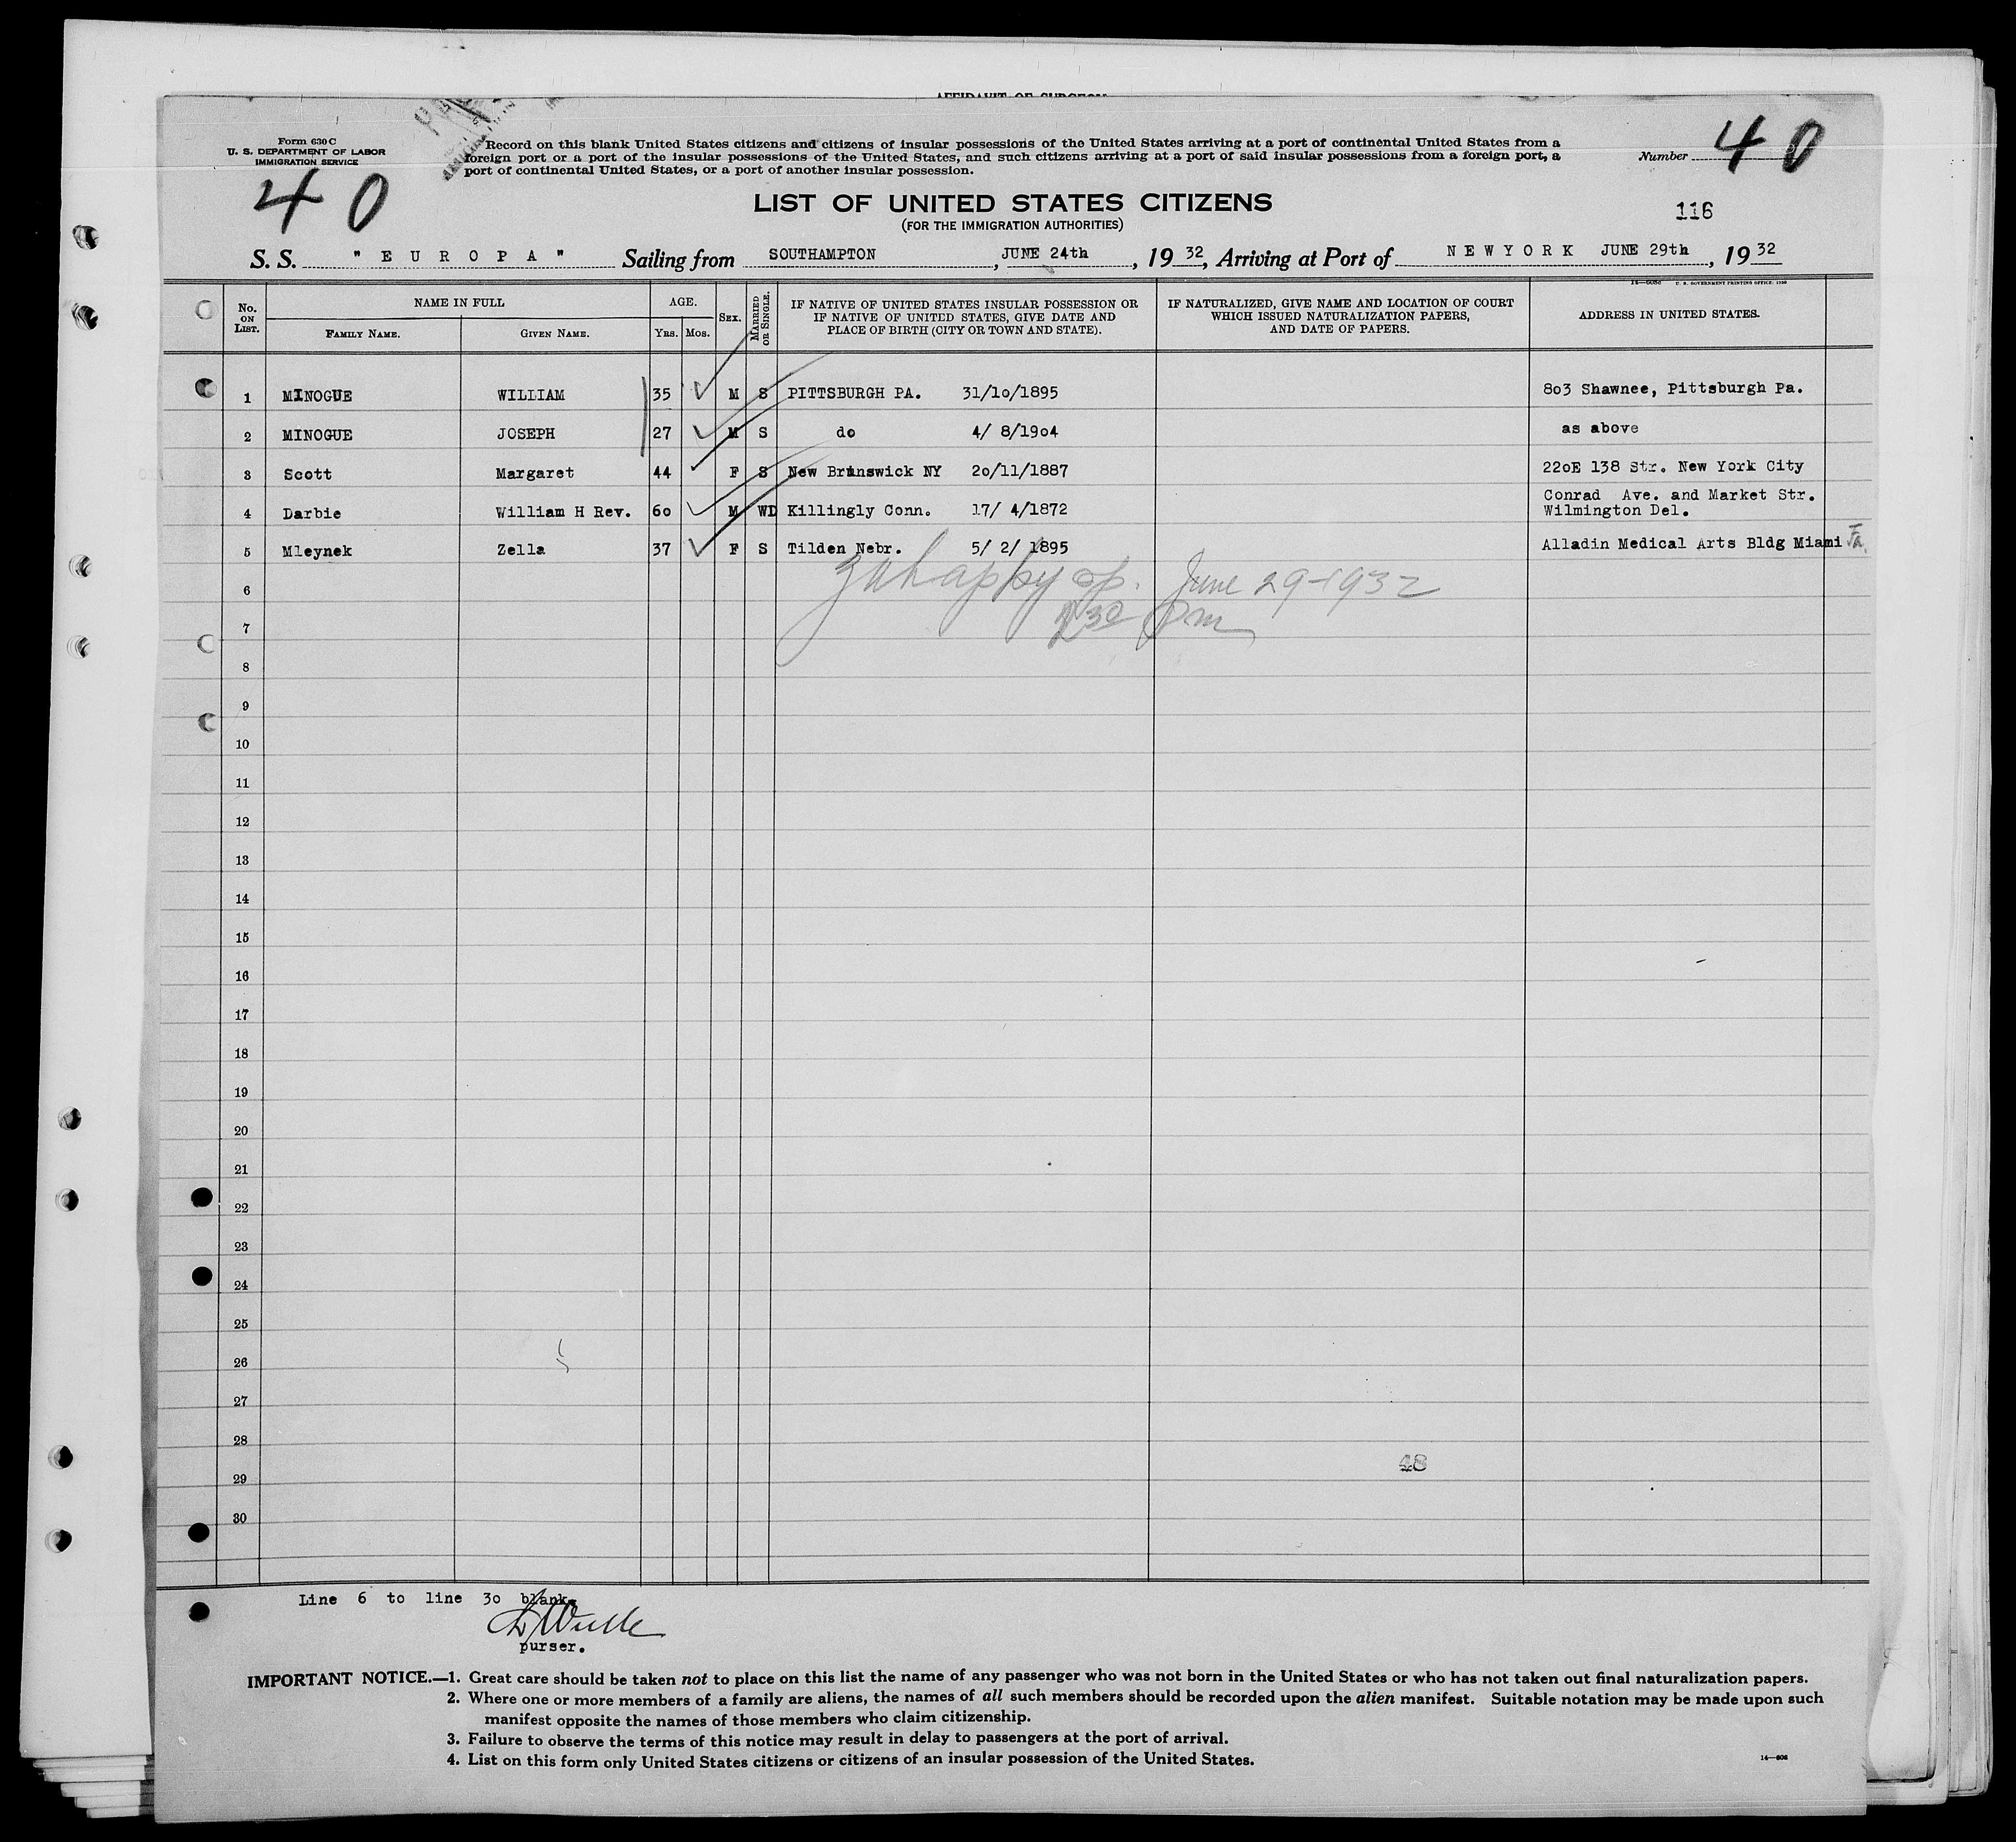 AFFIDAVIT OF SURGEON
Form 630 C
U. S. DEPARTMENT OF LABOR
IMMIGRATION SERVICE
40
Record on this blank United States citizens and citizens of insular possessions of the United States arriving at a port of continental United States from a
foreign port or a port of the insular possessions of the United States, and such citizens arriving at a port of said insular possessions from a foreign port, a
port of continental United States, or a port of another insular possession.
Number 40
LIST OF UNITED STATES CITIZENS
(FOR THE IMMIGRATION AUTHORITIES)
116
S. S. "EUROPA" Sailing from SOUTHAMPTON, JUNE 24th, 1932, Arriving at Port of NEWYORK JUNE 29th, 1932
U. S. GOVERNMENT PRINTING OFFICE: 1930
No. ON LIST. NAME IN FULL FAMILY NAME. GIVEN NAME. AGE. YRS. MOS. SEX. MARRIED OR SINGLE. IF NATIVE OF UNITED STATES INSULAR POSSESSION OR IF NATIVE OF UNITED STATES, GIVE DATE AND PLACE OF BIRTH (CITY OR TOWN AND STATE). IF NATURALIZED, GIVE NAME AND LOCATION OF COURT WHICH ISSUED NATURALIZATION PAPERS, AND DATE OF PAPERS. ADDRESS IN UNITED STATES.
1 MINOGUE WILLIAM 35 M S PITTSBURGH PA. 31/10/1895 803 Shawnee, Pittsburgh Pa.
2 MINOGUE JOSEPH 27 M S do 4/ 8/1904 as above
3 Scott Margaret 44 F S New Brunswick NY 20/11/1887 220E 138 Str. New York City
4 Darbie William H Rev. 60 M WD Killingly Conn. 17/ 4/1872 Conrad Ave. and Market Str.
Wilmington Del.
5 Mleynek Zella 37 F S Tilden Nebr. 5/ 2/ 1895 Alladin Medical Arts Bldg Miami
6 June 29-1932
7 30 pm
8
9
10
11
12
13
14
15
16
17
18
19
20
21
22
23
24
25
26
27
28
48
29
30
Line 6 to line 30 blank.
purser.
IMPORTANT NOTICE.—1. Great care should be taken not to place on this list the name of any passenger who was not born in the United States or who has not taken out final naturalization papers.
2. Where one or more members of a family are aliens, the names of all such members should be recorded upon the alien manifest. Suitable notation may be made upon such
manifest opposite the names of those members who claim citizenship.
3. Failure to observe the terms of this notice may result in delay to passengers at the port of arrival.
4. List on this form only United States citizens or citizens of an insular possession of the United States.